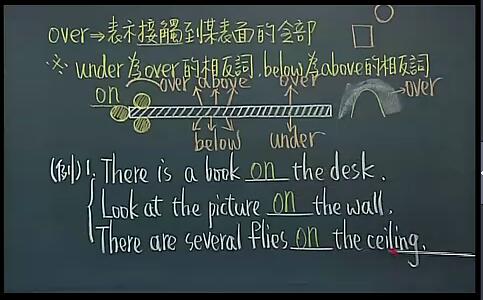 over⇒表示接觸到某表面的全部
※ under為over的相反詞,below為above的相反詞
over above over
on over
below under
(例)1. There is a book on the desk.
Look at the picture on the wall.
There are several flies on the ceiling.